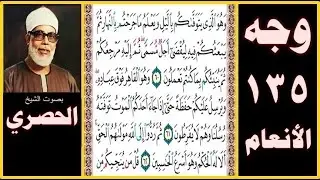 وجه
١٣٥
الأنعام
وَهُوَ ٱلَّذِي يَتَوَفَّىٰكُم بِٱلَّيْلِ وَيَعْلَمُ مَا جَرَحْتُم بِٱلنَّهَارِ ثُمَّ
يَبْعَثُكُمْ فِيهِ لِيُقْضَىٰٓ أَجَلٌ مُّسَمًّى ثُمَّ إِلَيْهِ مَرْجِعُكُمْ
ثُمَّ يُنَبِّئُكُم بِمَا كُنتُمْ تَعْمَلُونَ ٦٠ وَهُوَ ٱلْقَاهِرُ فَوْقَ عِبَادِهِۦ
وَيُرْسِلُ عَلَيْكُمْ حَفَظَةً حَتَّىٰٓ إِذَا جَآءَ أَحَدَكُمُ ٱلْمَوْتُ تَوَفَّتْهُ
رُسُلُنَا وَهُمْ لَا يُفَرِّطُونَ ٦١ ثُمَّ رُدُّوٓا۟ إِلَى ٱللَّهِ مَوْلَىٰهُمُ ٱلْحَقِّ
أَلَا لَهُ ٱلْحُكْمُ وَهُوَ أَسْرَعُ ٱلْحَٰسِبِينَ ٦٢ قُلْ مَن يُنَجِّيكُم مِّن
بصوت الشيخ
الحصري